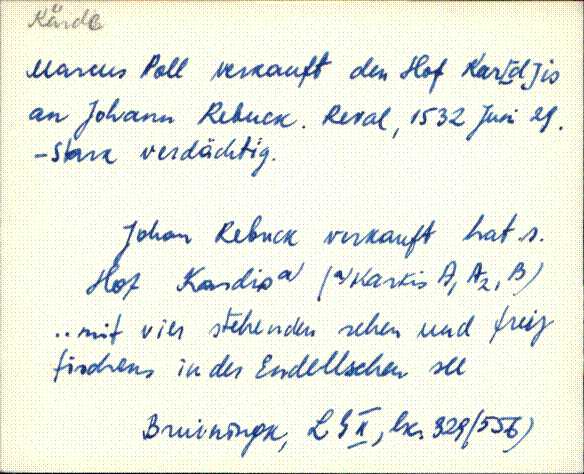 Kärde
Marcus Poll verkauft den Hof Kar[d]is
an Johann Rebuck. Reval, 1532 Juni 29.
- Stark verdächtig.
Johan Rebuck verkauft hat s.
Hof Kardis a) (a) Karkis A, A2, B)
..mit vier stehenden sehen und freig
fischens in der Endellschen see
Bruiningk, LG II, lk. 329 (556)